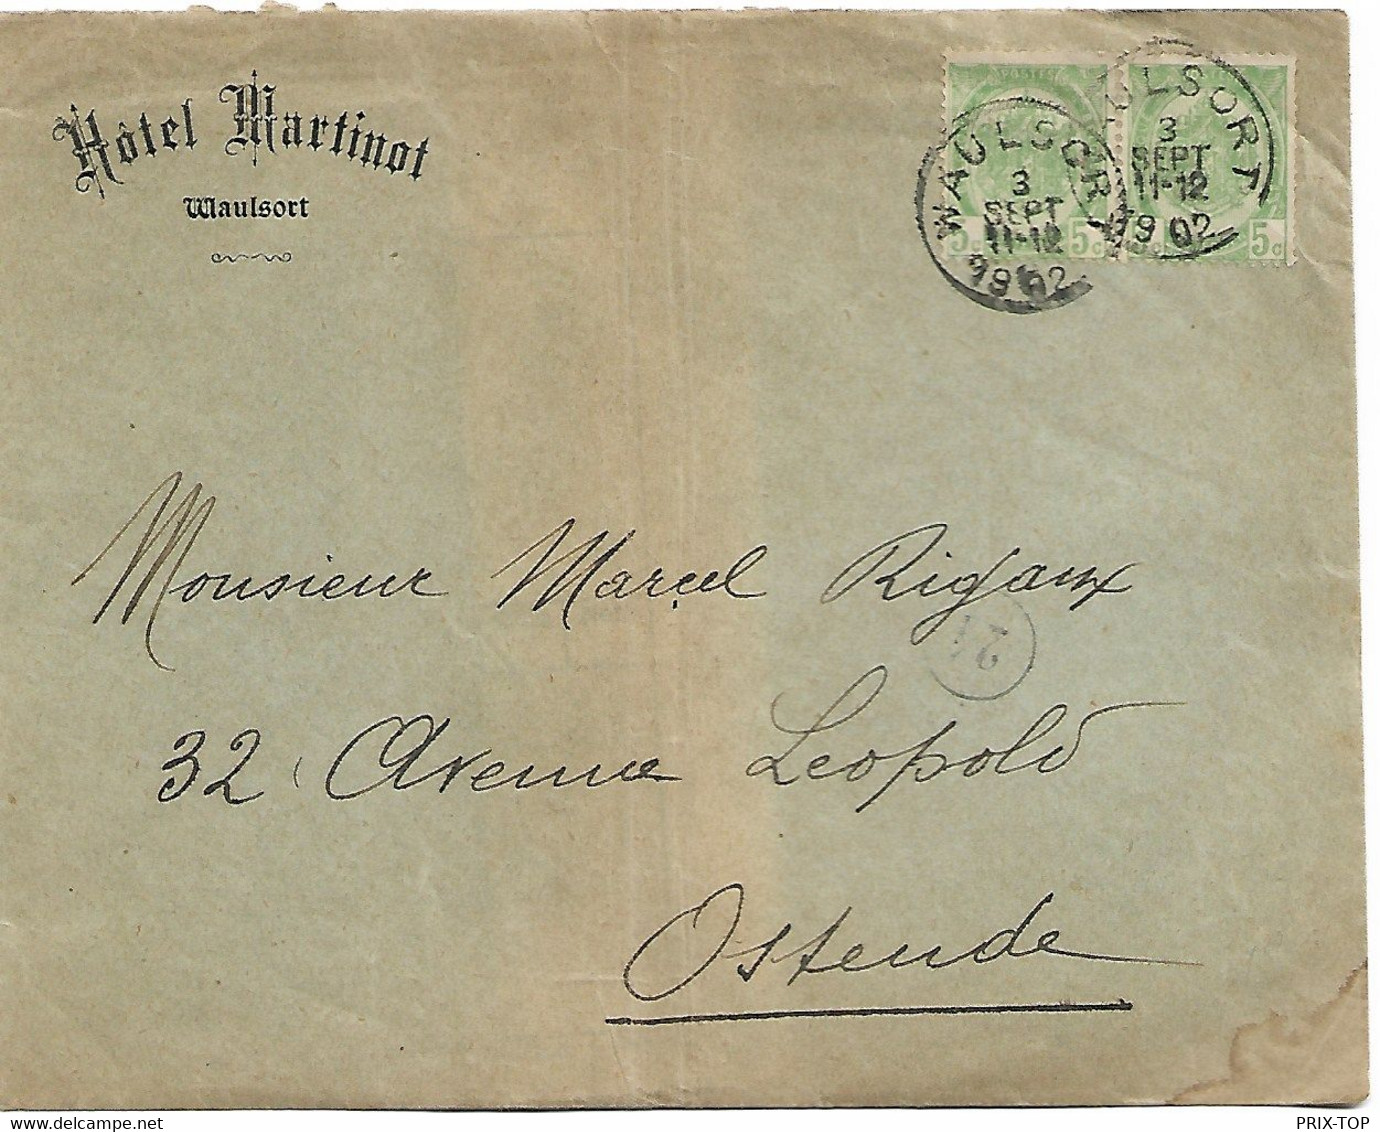 Hôtel Martinot
Waulsort
POSTES
WAULSORT
3
SEPT
11-12
1902
5c 5c
WAULSORT
3
SEPT
11-12
1902
5c
Monsieur Marcel Rigaux
21
32, Avenue Leopold
Ostende
PRIX-TOP